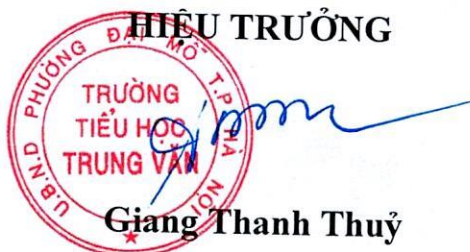 HIỆU TRƯỞNG
U.B.N.D PHƯỜNG ĐẠI MỖ T.P HÀ NỘI
TRƯỜNG
TIỂU HỌC
TRUNG VĂN
Giang Thanh Thuỷ